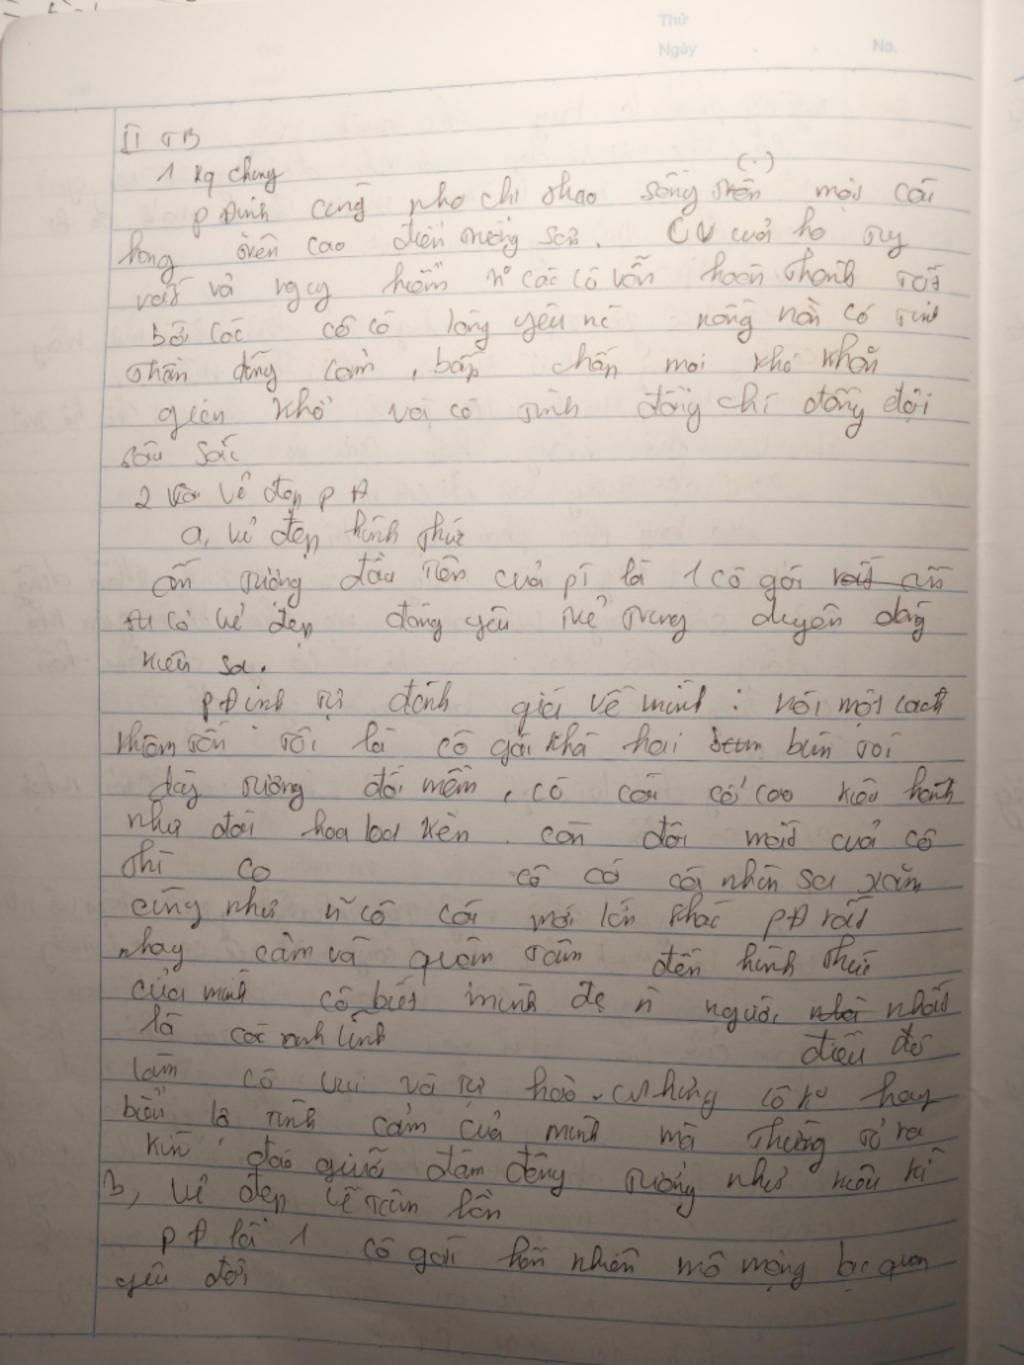 Thứ
Ngày No.
II TB
1 Kq chung
(.)
P Định cùng nho chị thao sống trên một cái
hang trên cao điểm trường sơn. CV của họ tuy
vất vả nguy hiểm nº các cô vẫn hoàn thành tốt
bởi các cô có lòng yêu nc nồng nàn có tinh
thần dũng cảm, bấp chấp mọi khó khăn
gian khổ với có tình đồng chí đồng đội
sâu sắc
2 vẻ đẹp P Đ
a, vẻ đẹp hình thức
ấn tượng đầu tiên của là 1 cô gái rất ấn
có vẻ đẹp đáng yêu trẻ trung duyên dáng
kiêu sa.
P Định tự đánh giá về mình : nói một cách
khiêm tốn tôi là cô gái khá hai bím tói
dày tương đối mềm, có cái cổ cao kiêu hãnh
như đài hoa loa kèn. còn đôi mắt của cô
thì co cô có cái nhìn sa xăm
cũng như n~ cô cái mới lớn khác P Đ rất
nhay cảm và quan tâm đến hình thức
của mình cô biết mình đẹ n người nhất
là các anh lính điều đó
làm cô vui và tự hào. Nhưng cô kº hay
biểu lô tình cảm của mình mà thường tỏ ra
kín đáo giữa đám đông tưởng như kiêu kì
B, vẻ đẹp về tâm hồn
P Đ là 1 cô gái hồn nhiên mô mộng lạc quan
yêu đời